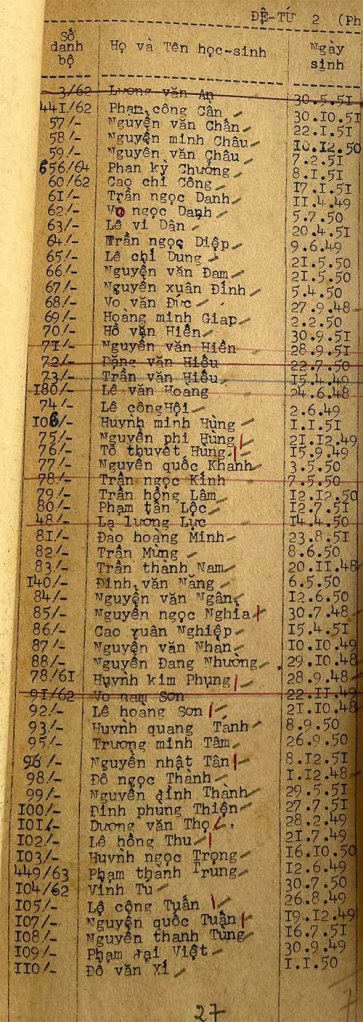 ĐỆ-TỨ 2 (Ph
Số danh bộ Họ và Tên học-sinh Ngày sinh
3/62 Lương văn An 30.5.51
441/62 Phạm công Cân 30.10.51
57/- Nguyễn văn Chấn 22.1.51
58/- Nguyễn minh Châu 10.12.50
59/- Nguyễn văn Châu 7.2.51
656/64 Phan ký Chương 8.1.51
60/62 Cao chí Công 17.1.51
61/- Trần ngọc Danh 11.4.49
62/- Vo ngọc Danh 5.7.50
63/- Lê vi Dân 20.4.51
64/- Trần ngọc Diệp 9.6.49
65/- Lê chí Dung 21.5.50
66/- Nguyễn văn Đam 21.5.50
67/- Nguyễn xuân Đỉnh 5.4.50
68/- Vo văn Đức 27.9.48
69/- Hoàng minh Giap 2.2.50
70/- Hồ văn Hiền 30.9.51
71/- Nguyễn văn Hiền 28.9.51
72/- Đặng văn Hiếu 22.7.50
73/- Trần văn Hiếu 15.4.49
180/- Lê văn Hoàng 24.6.48
74/- Lê công Hội 2.6.49
106/- Huynh minh Hùng 1.1.51
75/- Nguyễn phi Hùng 21.12.49
76/- Tô thuyết Hùng 15.9.49
77/- Nguyễn quốc Khanh 3.5.50
78/- Trần ngọc Kỉnh 7.5.50
79/- Trần hồng Lâm 12.12.50
80/- Phạm tấn Lộc 12.7.51
48/- Lạ lương Lực 14.4.50
81/- Đào hoàng Minh 23.8.51
82/- Trần Mừng 8.6.50
83/- Trần thành Nam 20.11.48
140/- Đinh văn Năng 6.5.50
84/- Nguyễn văn Ngân 12.6.50
85/- Nguyễn ngọc Nghia 30.7.48
86/- Cao xuân Nghiệp 15.4.51
87/- Nguyễn văn Nhan 10.10.49
88/- Nguyễn Đang Nhường 29.10.48
78/61 Huỳnh kim Phụng 28.9.48
91/62 Vo nam Sơn 22.11.49
92/- Lê hoàng Sơn 21.10.48
93/- Huynh quang Tanh 8.9.50
95/- Trương minh Tâm 26.9.50
96/- Nguyễn nhật Tân 8.12.51
98/- Đỗ ngọc Thành 1.12.48
99/- Nguyễn đình Thành 29.5.51
100/- Đinh phùng Thiện 27.7.51
101/- Dương văn Thọ 28.2.49
102/- Lê hồng Thu 21.7.49
103/- Huynh ngọc Trọng 16.10.50
449/63 Phạm thành Trung 12.6.49
104/62 Vinh Tu 30.7.50
105/- Lê công Tuấn 26.8.49
107/- Nguyễn quốc Tuấn 19.12.49
108/- Nguyễn thanh Tùng 16.7.51
109/- Phạm đại Việt 30.9.49
110/- Đỗ văn Xi 1.1.50
27